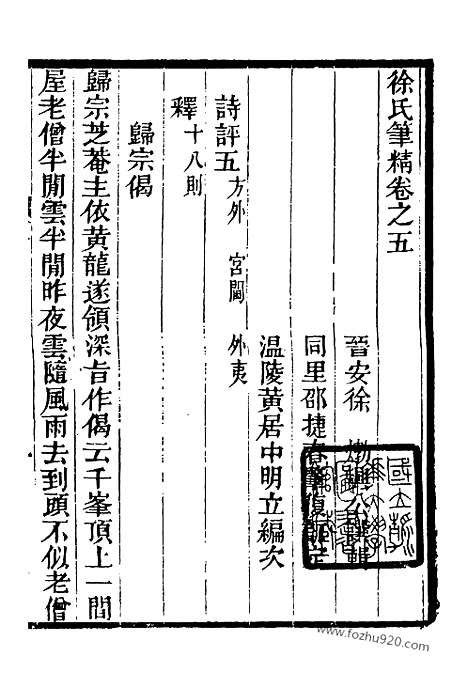 徐氏筆精卷之五
晉安徐 興公 輯
同里邵捷春
温陵黄居中明立編次
詩評五 方外 宮閫 外夷
釋 十八則
歸宗偈
歸宗芝菴主依黄龍遂領深旨作偈云千峯頂上一間
屋老僧半閒雲半閒昨夜雲隨風雨去到頭不似老僧
www.fozhu920.com